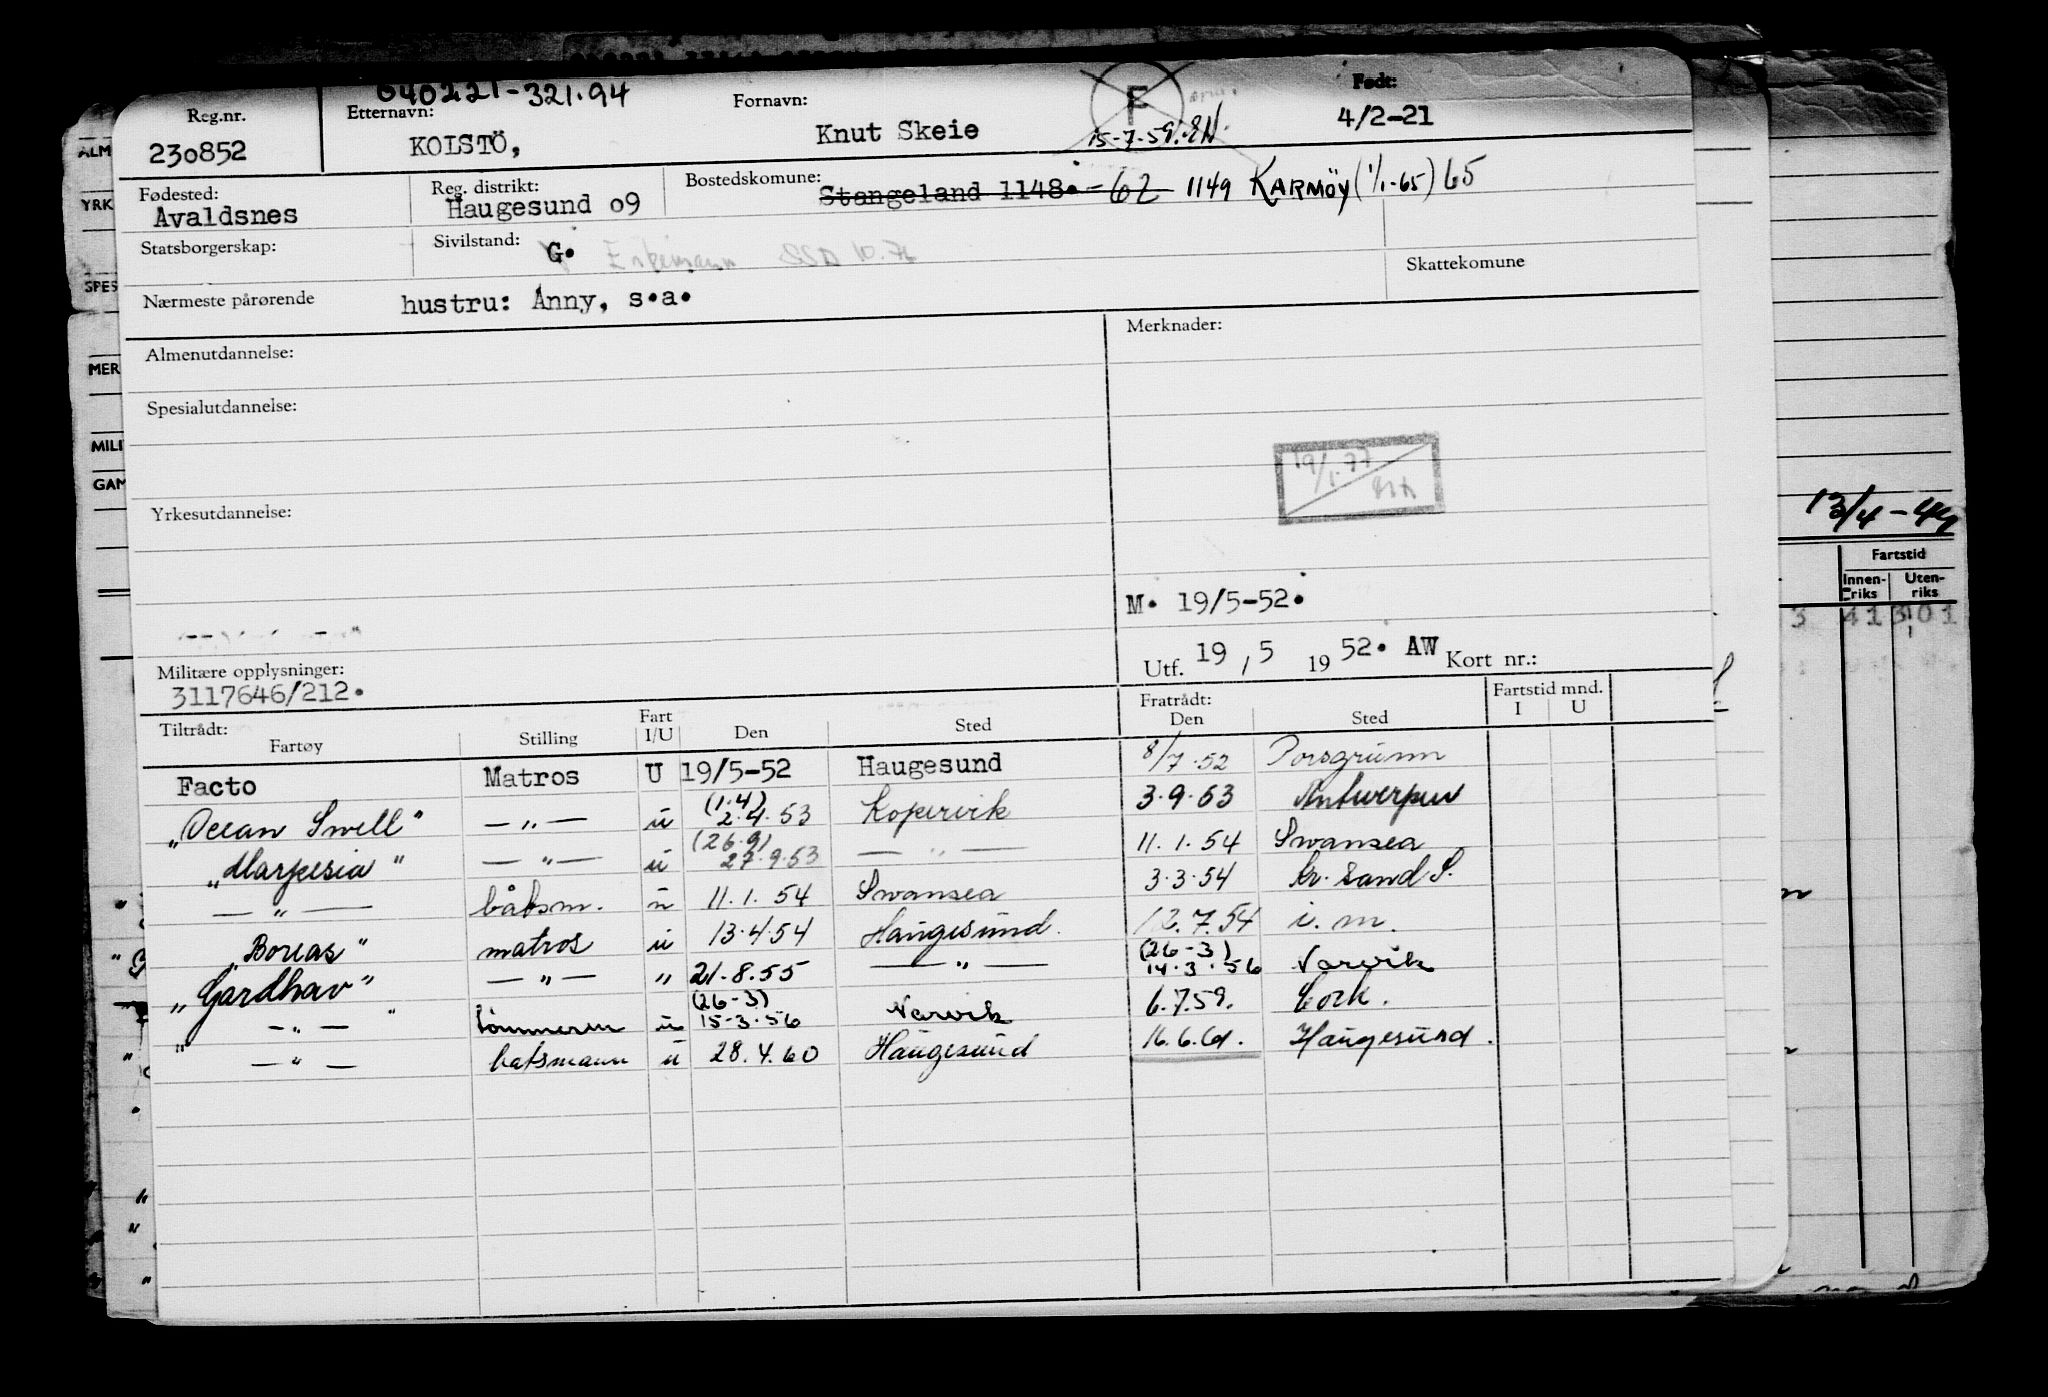 040221-321.94
Reg.nr. Etternavn: Fornavn: F Født:
230852 KOLSTÖ, Knut Skeie 15-7-59. EN. 4/2-21
Fødested: Reg. distrikt: Bostedskomune:
Avaldsnes Haugesund o9 Stangeland 1148. -62 1149 KARMÖY (1/1-65) 65
Statsborgerskap: Sivilstand: G. Enkemann SSD 10.76
Skattekomune
Nærmeste pårørende hustru: Anny, s.a.
Almenutdannelse: Merknader:
Spesialutdannelse:
19/1.77
Yrkesutdannelse:
M. 19/5-52.
Utf. 19, 5 1952. AW Kort nr.:
Militære opplysninger:
3117646/212.
Tiltrådt: Fratrådt: Fartstid mnd.
Fartøy Stilling Fart I/U Den Sted Den Sted I U
Facto Matros U 19/5-52 Haugesund 8/7.52 Porsgrunn
„Ocean Swell" — „ — u (1.4) 2.4.53 Kopervik 3.9.53 Antwerpen
„Marpesia" — „ — u (26.9) 27.9.53 — „ — 11.1.54 Swansea
— „ — båtsm. u 11.1.54 Swansea 3.3.54 Kr. Sand S.
„Boreas" matros u 13.4.54 Haugesund. 12.7.54 i.m.
„Gardhav" — „ — „ 21.8.55 — „ — (26-3) 14.3.56 Narvik
„ — „ — " tömmerm u (26-3) 15-3.56 Narvik 6.7.59. Cork.
— „ — batsmann u 28.4.60 Haugesund 16.6.61. Haugesund.
ALM
YRK
SPES
MER
MILI
GAM
13/4-44
Fartstid
Innenriks Utenriks
3 41 301